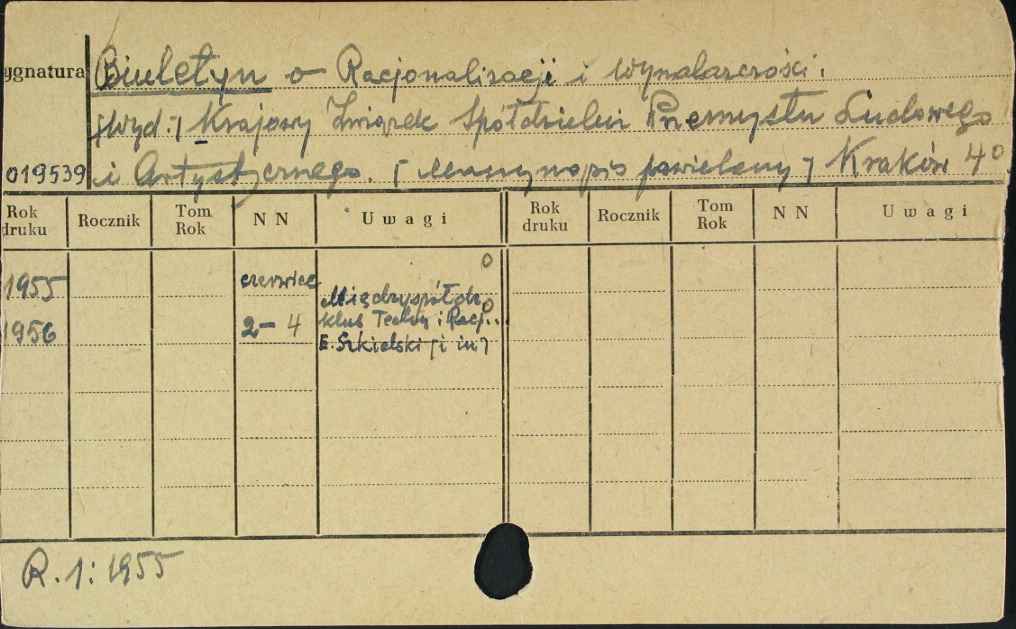 ygnatura Biuletyn o Racjonalizacji i Wynalazczości.
[Wyd:] Krajowy Związek Spółdzielni Przemysłu Ludowego
019539 i Artystycznego. [Maszynopis powielany] Kraków 4°
Rok druku Rocznik Tom Rok NN Uwagi Rok druku Rocznik Tom Rok NN Uwagi
1955 czerwiec 0
Międzyspółdz. 0
1956 2-4 klub Techn i Racj...
E. Szkielski [i in]
R. 1: 1955